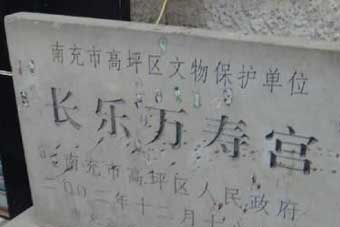 南充市高坪区文物保护单位
长乐万寿宫
南充市高坪区人民政府
二〇〇二年十二月十